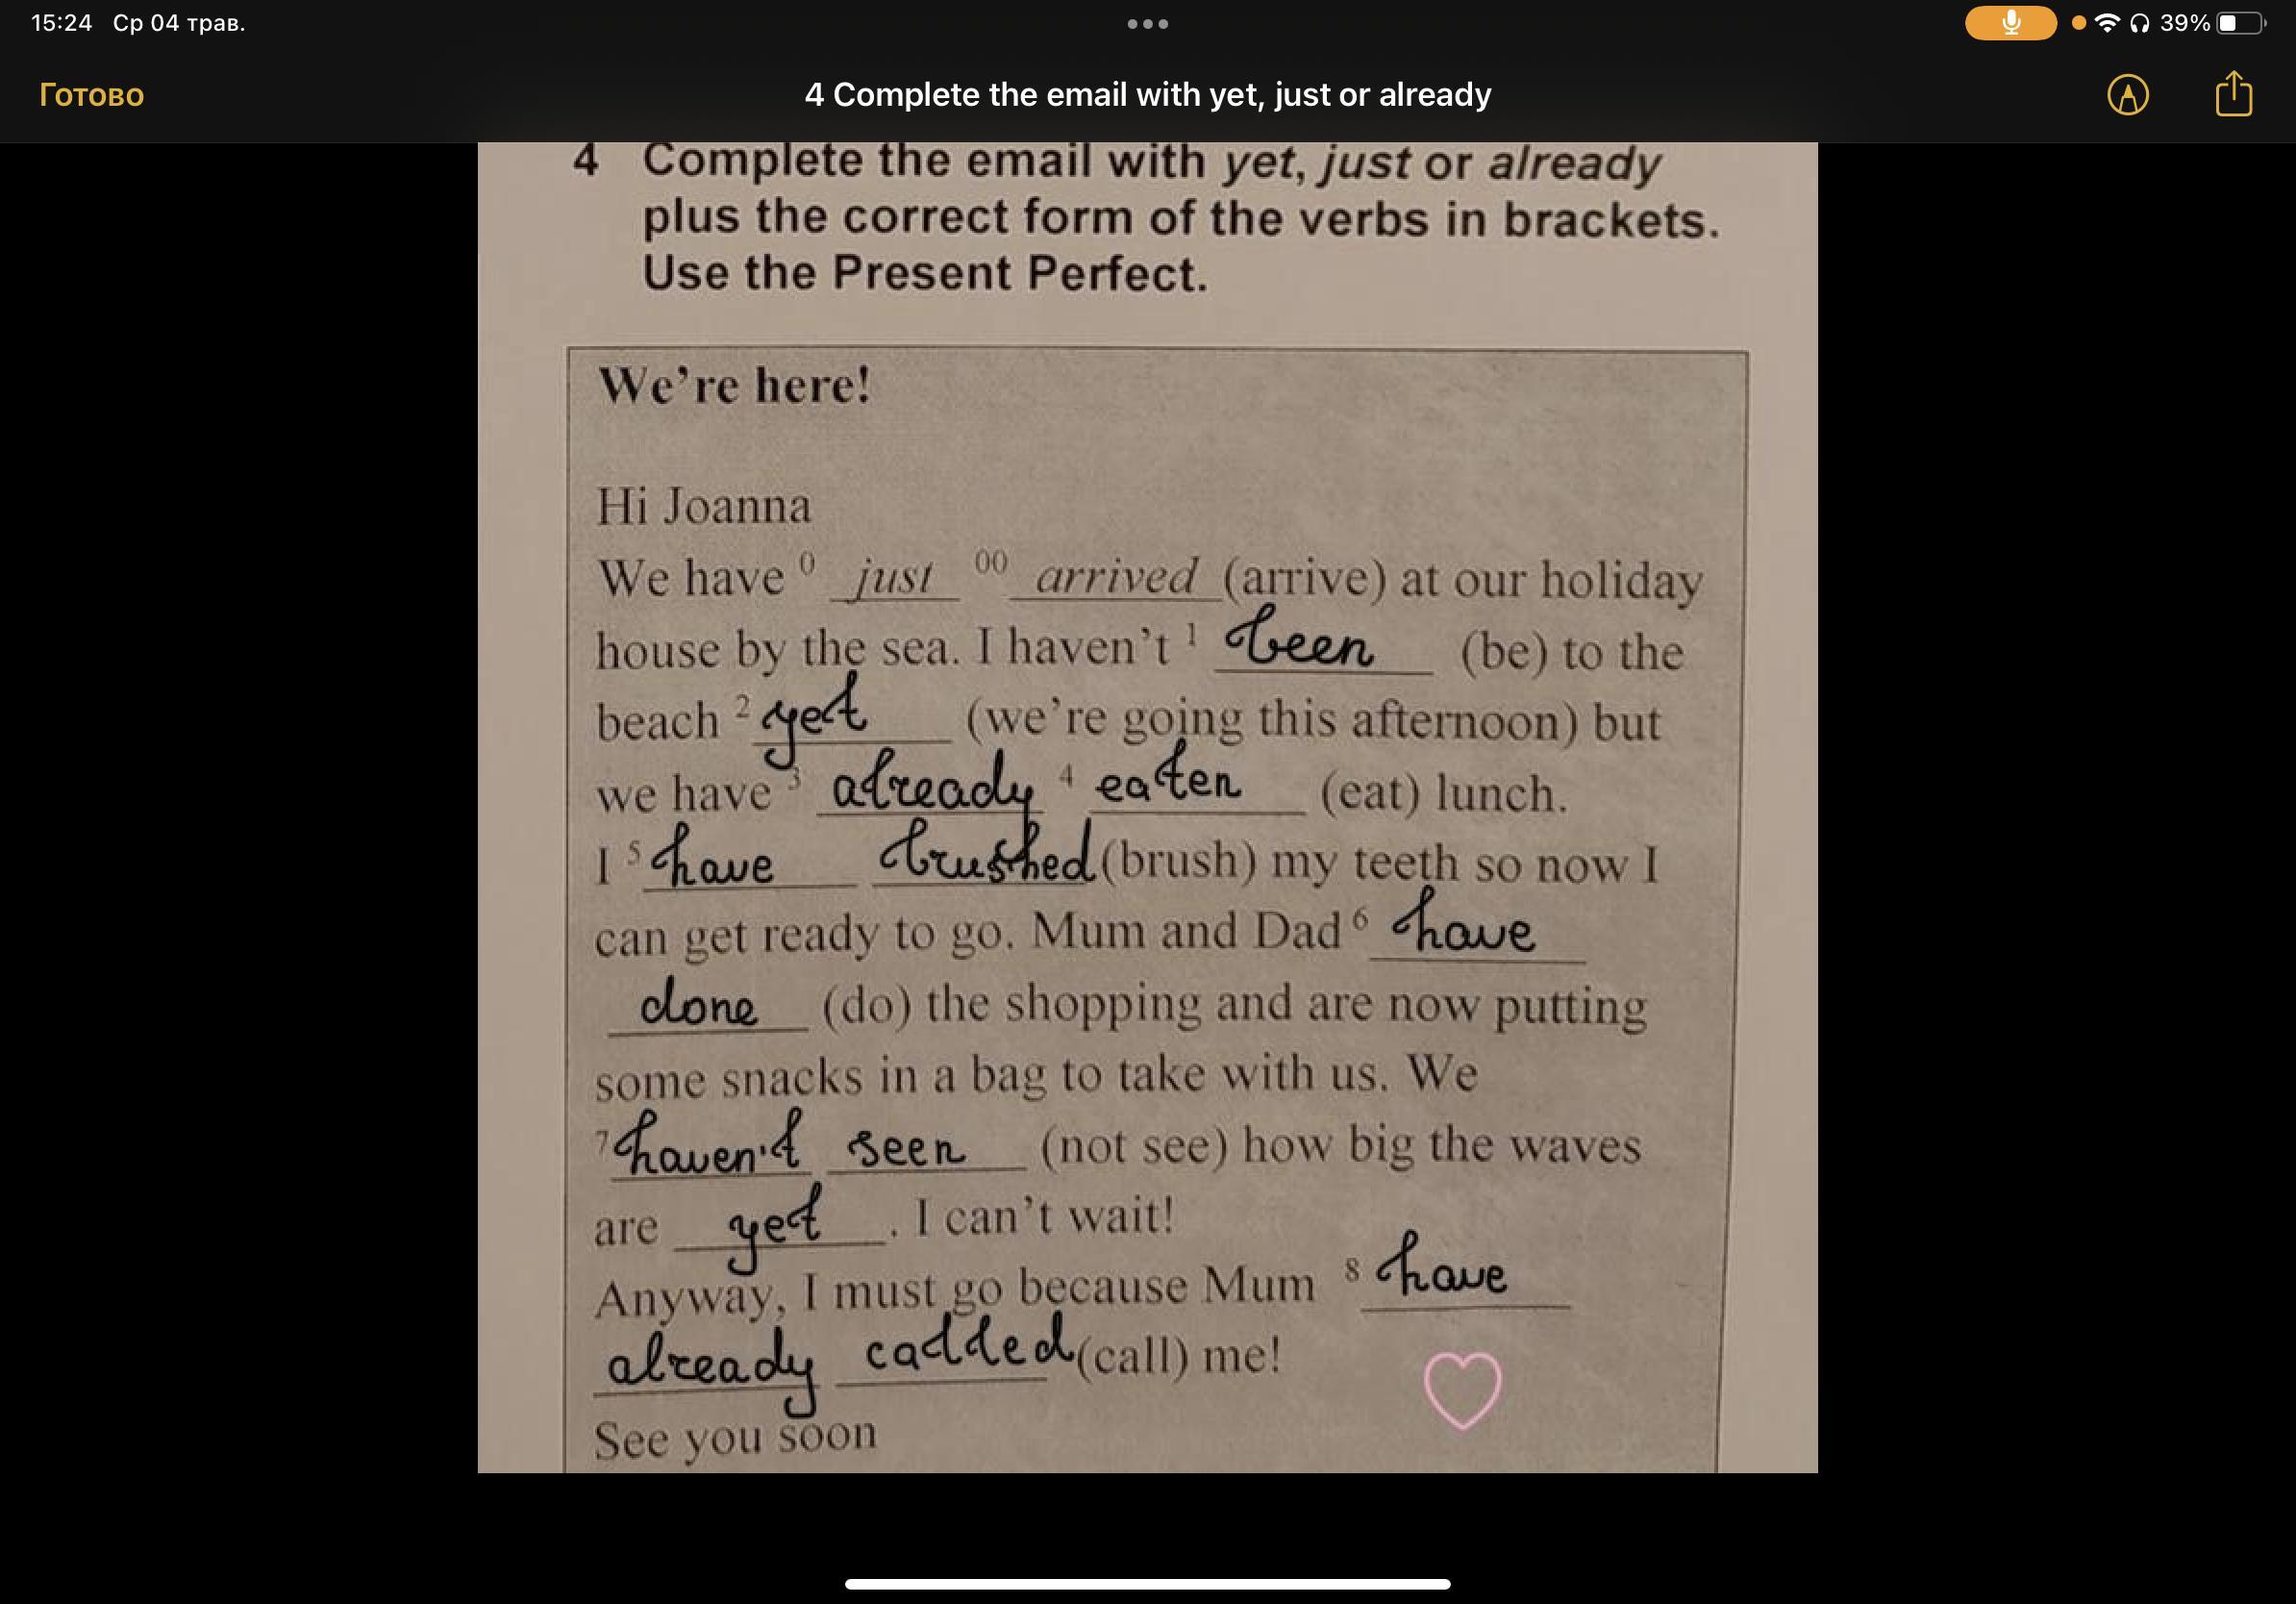 15:24 Ср 04 трав.
39%
Готово
4 Complete the email with yet, just or already
4 Complete the email with yet, just or already
plus the correct form of the verbs in brackets.
Use the Present Perfect.
We're here!
Hi Joanna
We have 0 just 00 arrived (arrive) at our holiday
house by the sea. I haven't 1 been (be) to the
beach 2 yet (we're going this afternoon) but
we have 3 already 4 eaten (eat) lunch.
I 5 have brushed (brush) my teeth so now I
can get ready to go. Mum and Dad 6 have
done (do) the shopping and are now putting
some snacks in a bag to take with us. We
7 haven't seen (not see) how big the waves
are yet. I can't wait!
Anyway, I must go because Mum 8 have
already called (call) me!
See you soon